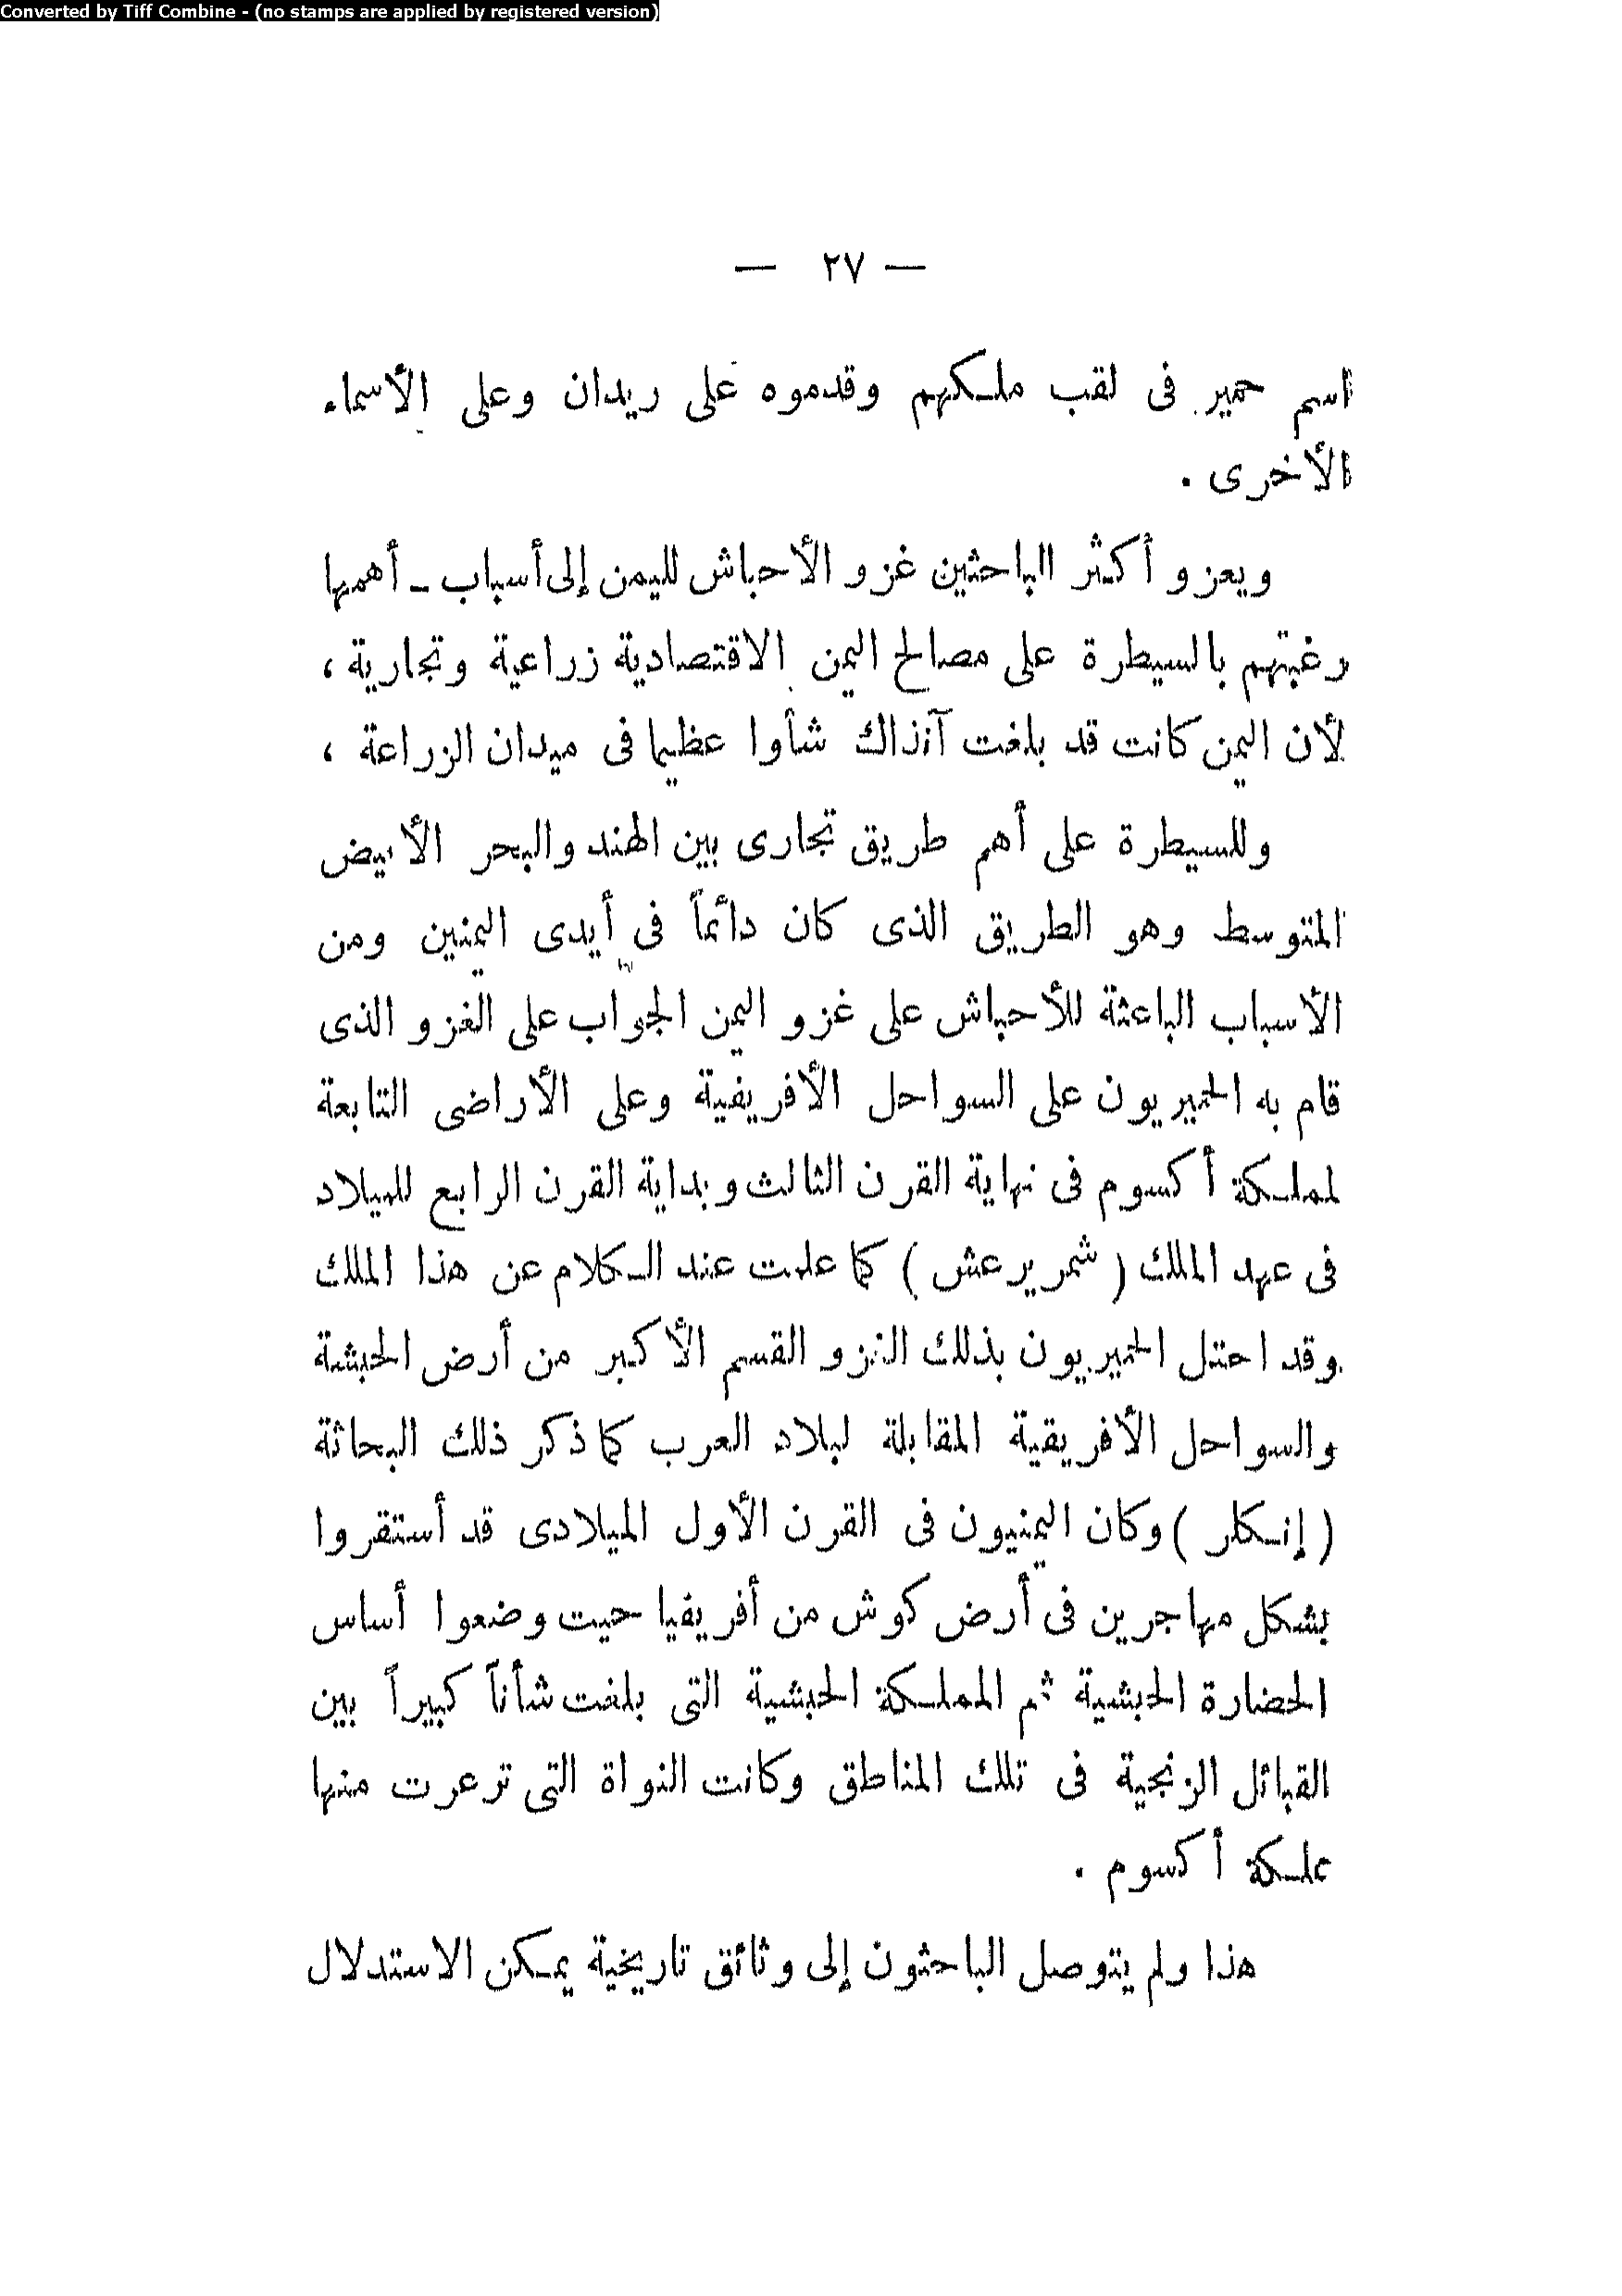 Converted by Tiff Combine - (no stamps are applied by registered version)
— ٢٧ —
اسم حمير فى لقب ملكهم وقدموه على ريدان وعلى الأسماء
الأخرى .
ويعزو أكثر الباحثين غزو الأحباش لليمن إلى أسباب - أهمها
رغبتهم بالسيطرة على مصالح اليمن الاقتصادية زراعية وتجارية ،
لأن اليمن كانت قد بلغت آنذاك شأوا عظيما فى ميدان الزراعة ،
وللسيطرة على أهم طريق تجارى بين الهند والبحر الأبيض
المتوسط وهو الطريق الذى كان دائماً فى أيدى اليمنين ومن
الأسباب الباعثة للأحباش على غزو اليمن الجواب على الغزو الذى
قام به الحميريون على السواحل الأفريقية وعلى الأراضى التابعة
لمملكة أكسوم فى نهاية القرن الثالث وبداية القرن الرابع للميلاد
فى عهد الملك ( شمر يرعش ) كما علمت عند الكلام عن هذا الملك
وقد احتل الحميريون بذلك الغزو القسم الأكبر من أرض الحبشة
والسواحل الأفريقية المقابلة لبلاد العرب كما ذكر ذلك البحاثة
( إنكلر ) وكان اليمنيون فى القرن الأول الميلادى قد أستقروا
بشكل مهاجرين فى أرض كوش من أفريقيا حيت وضعوا أساس
الحضارة الحبشية ثم المملكة الحبشية التى بلغت شأناً كبيراً بين
القبائل الزنجية فى تلك المناطق وكانت النواة التى ترعرت منها
مملكة أكسوم .
هذا ولم يتوصل الباحثون إلى وثائق تاريخية يمكن الاستدلال